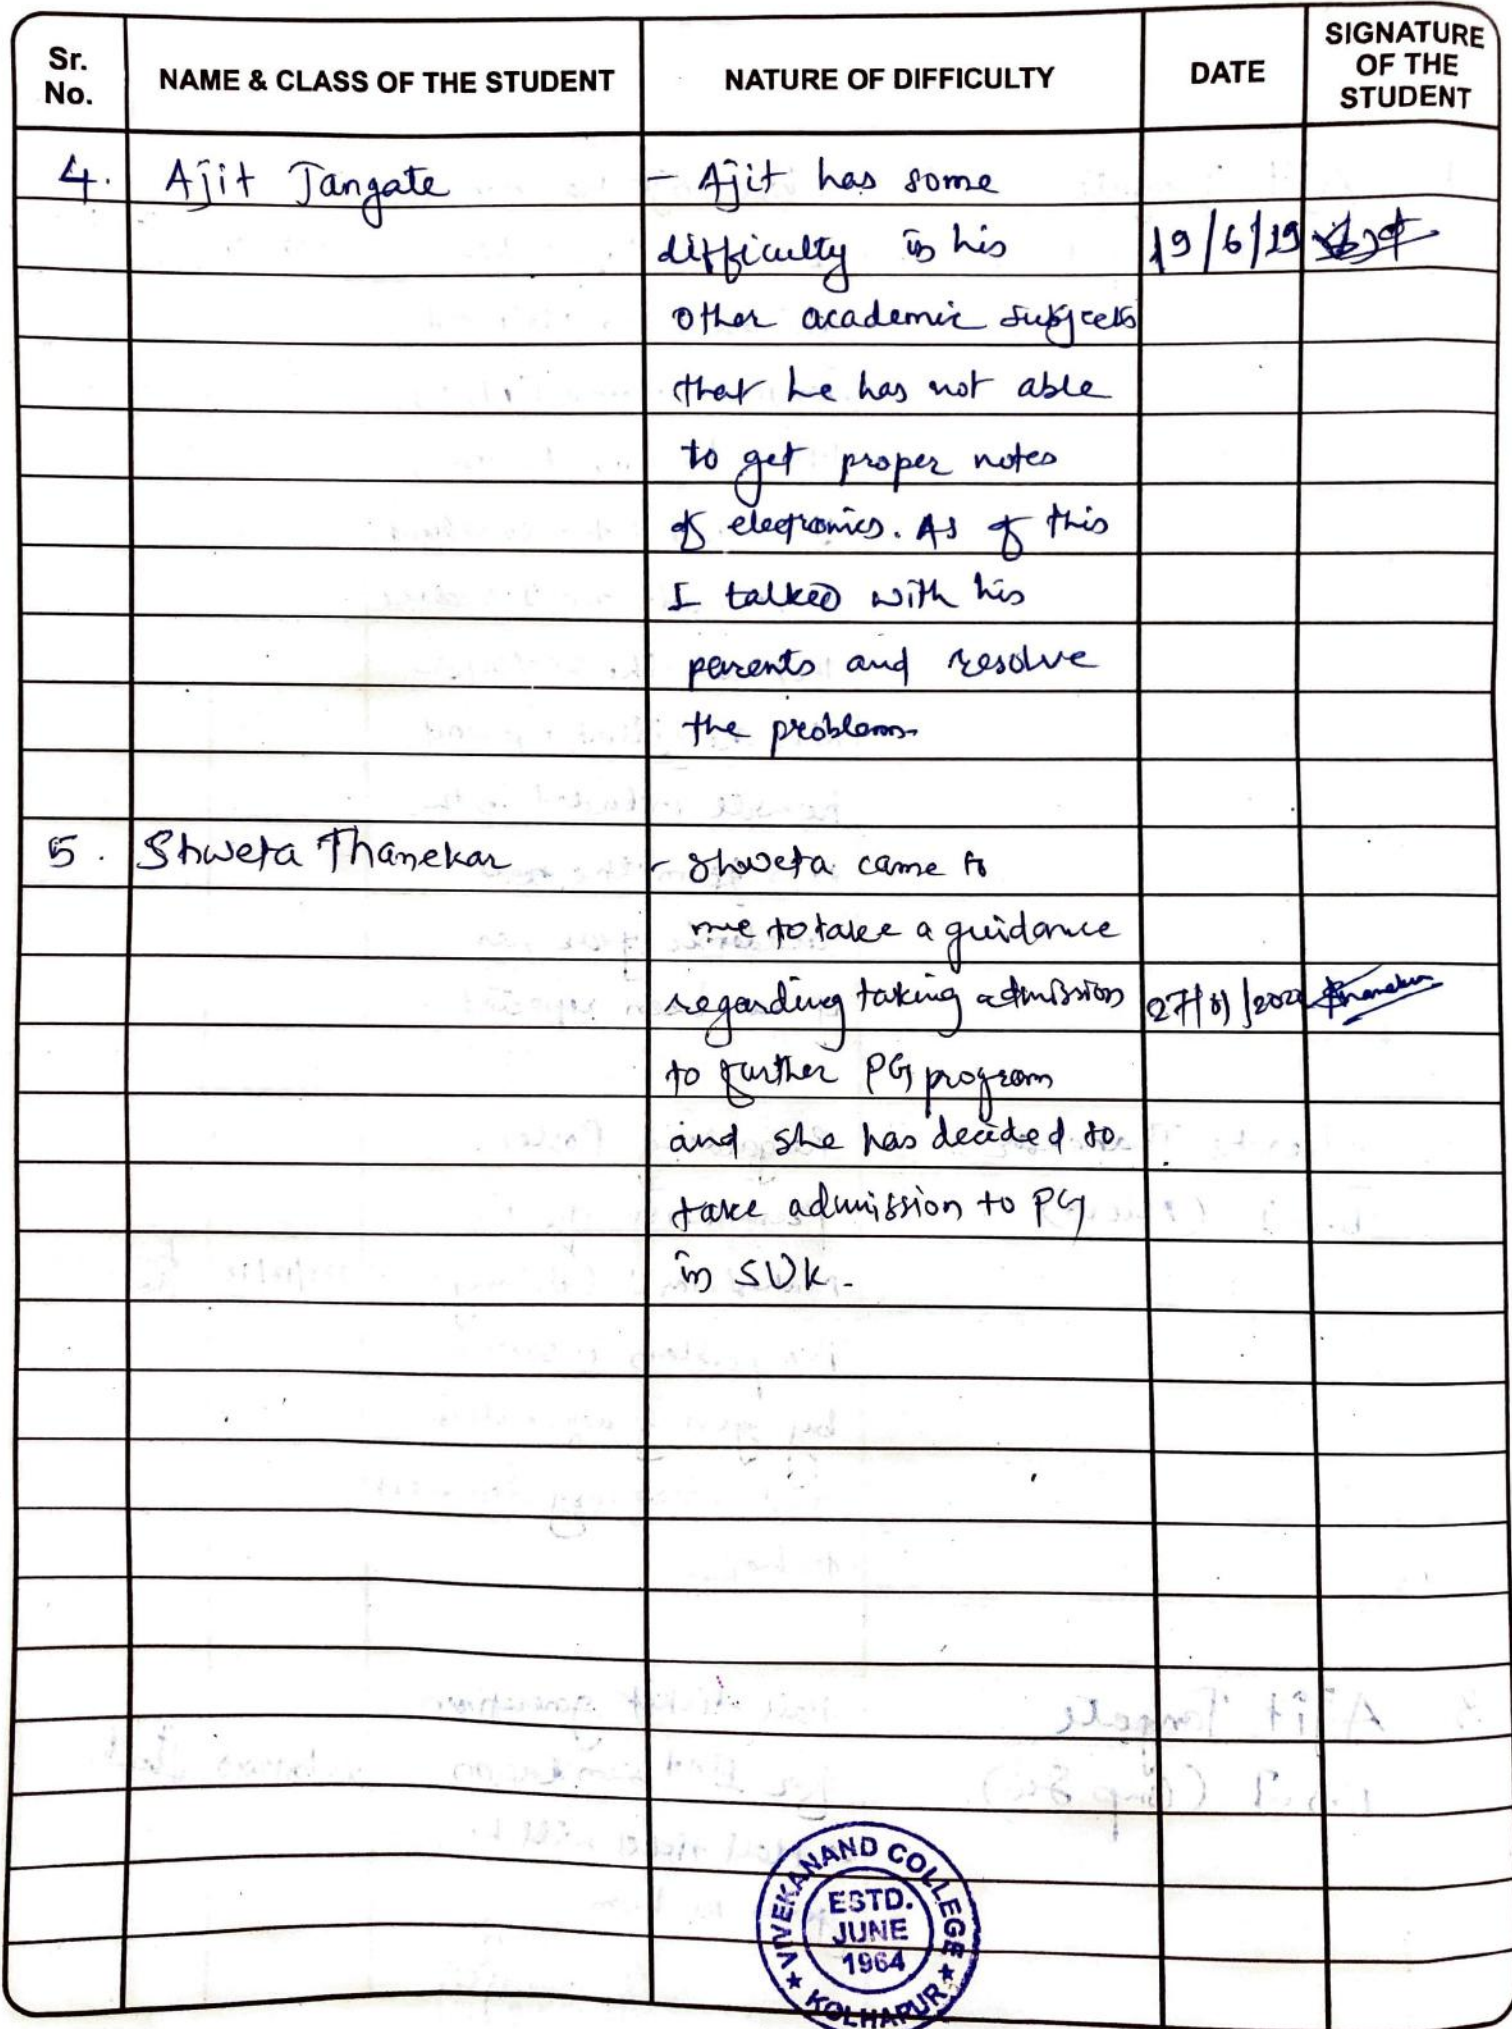 Sr. No.
NAME & CLASS OF THE STUDENT
NATURE OF DIFFICULTY
DATE
SIGNATURE OF THE STUDENT
4. Ajit Jangate - Ajit has some
difficulty in his 19/6/19
other academic subjects
that he has not able
to get proper notes
of electronics. As of this
I talked with his
parents and resolve
the problem.
5. Shweta Thanekar - Shweta came to
me to take a guidance
regarding taking admission
to further PG program
and she has decided to
take admission to PG
in SUK.
VIVEKANAND COLLEGE
ESTD.
JUNE
1964
★ KOLHAPUR ★